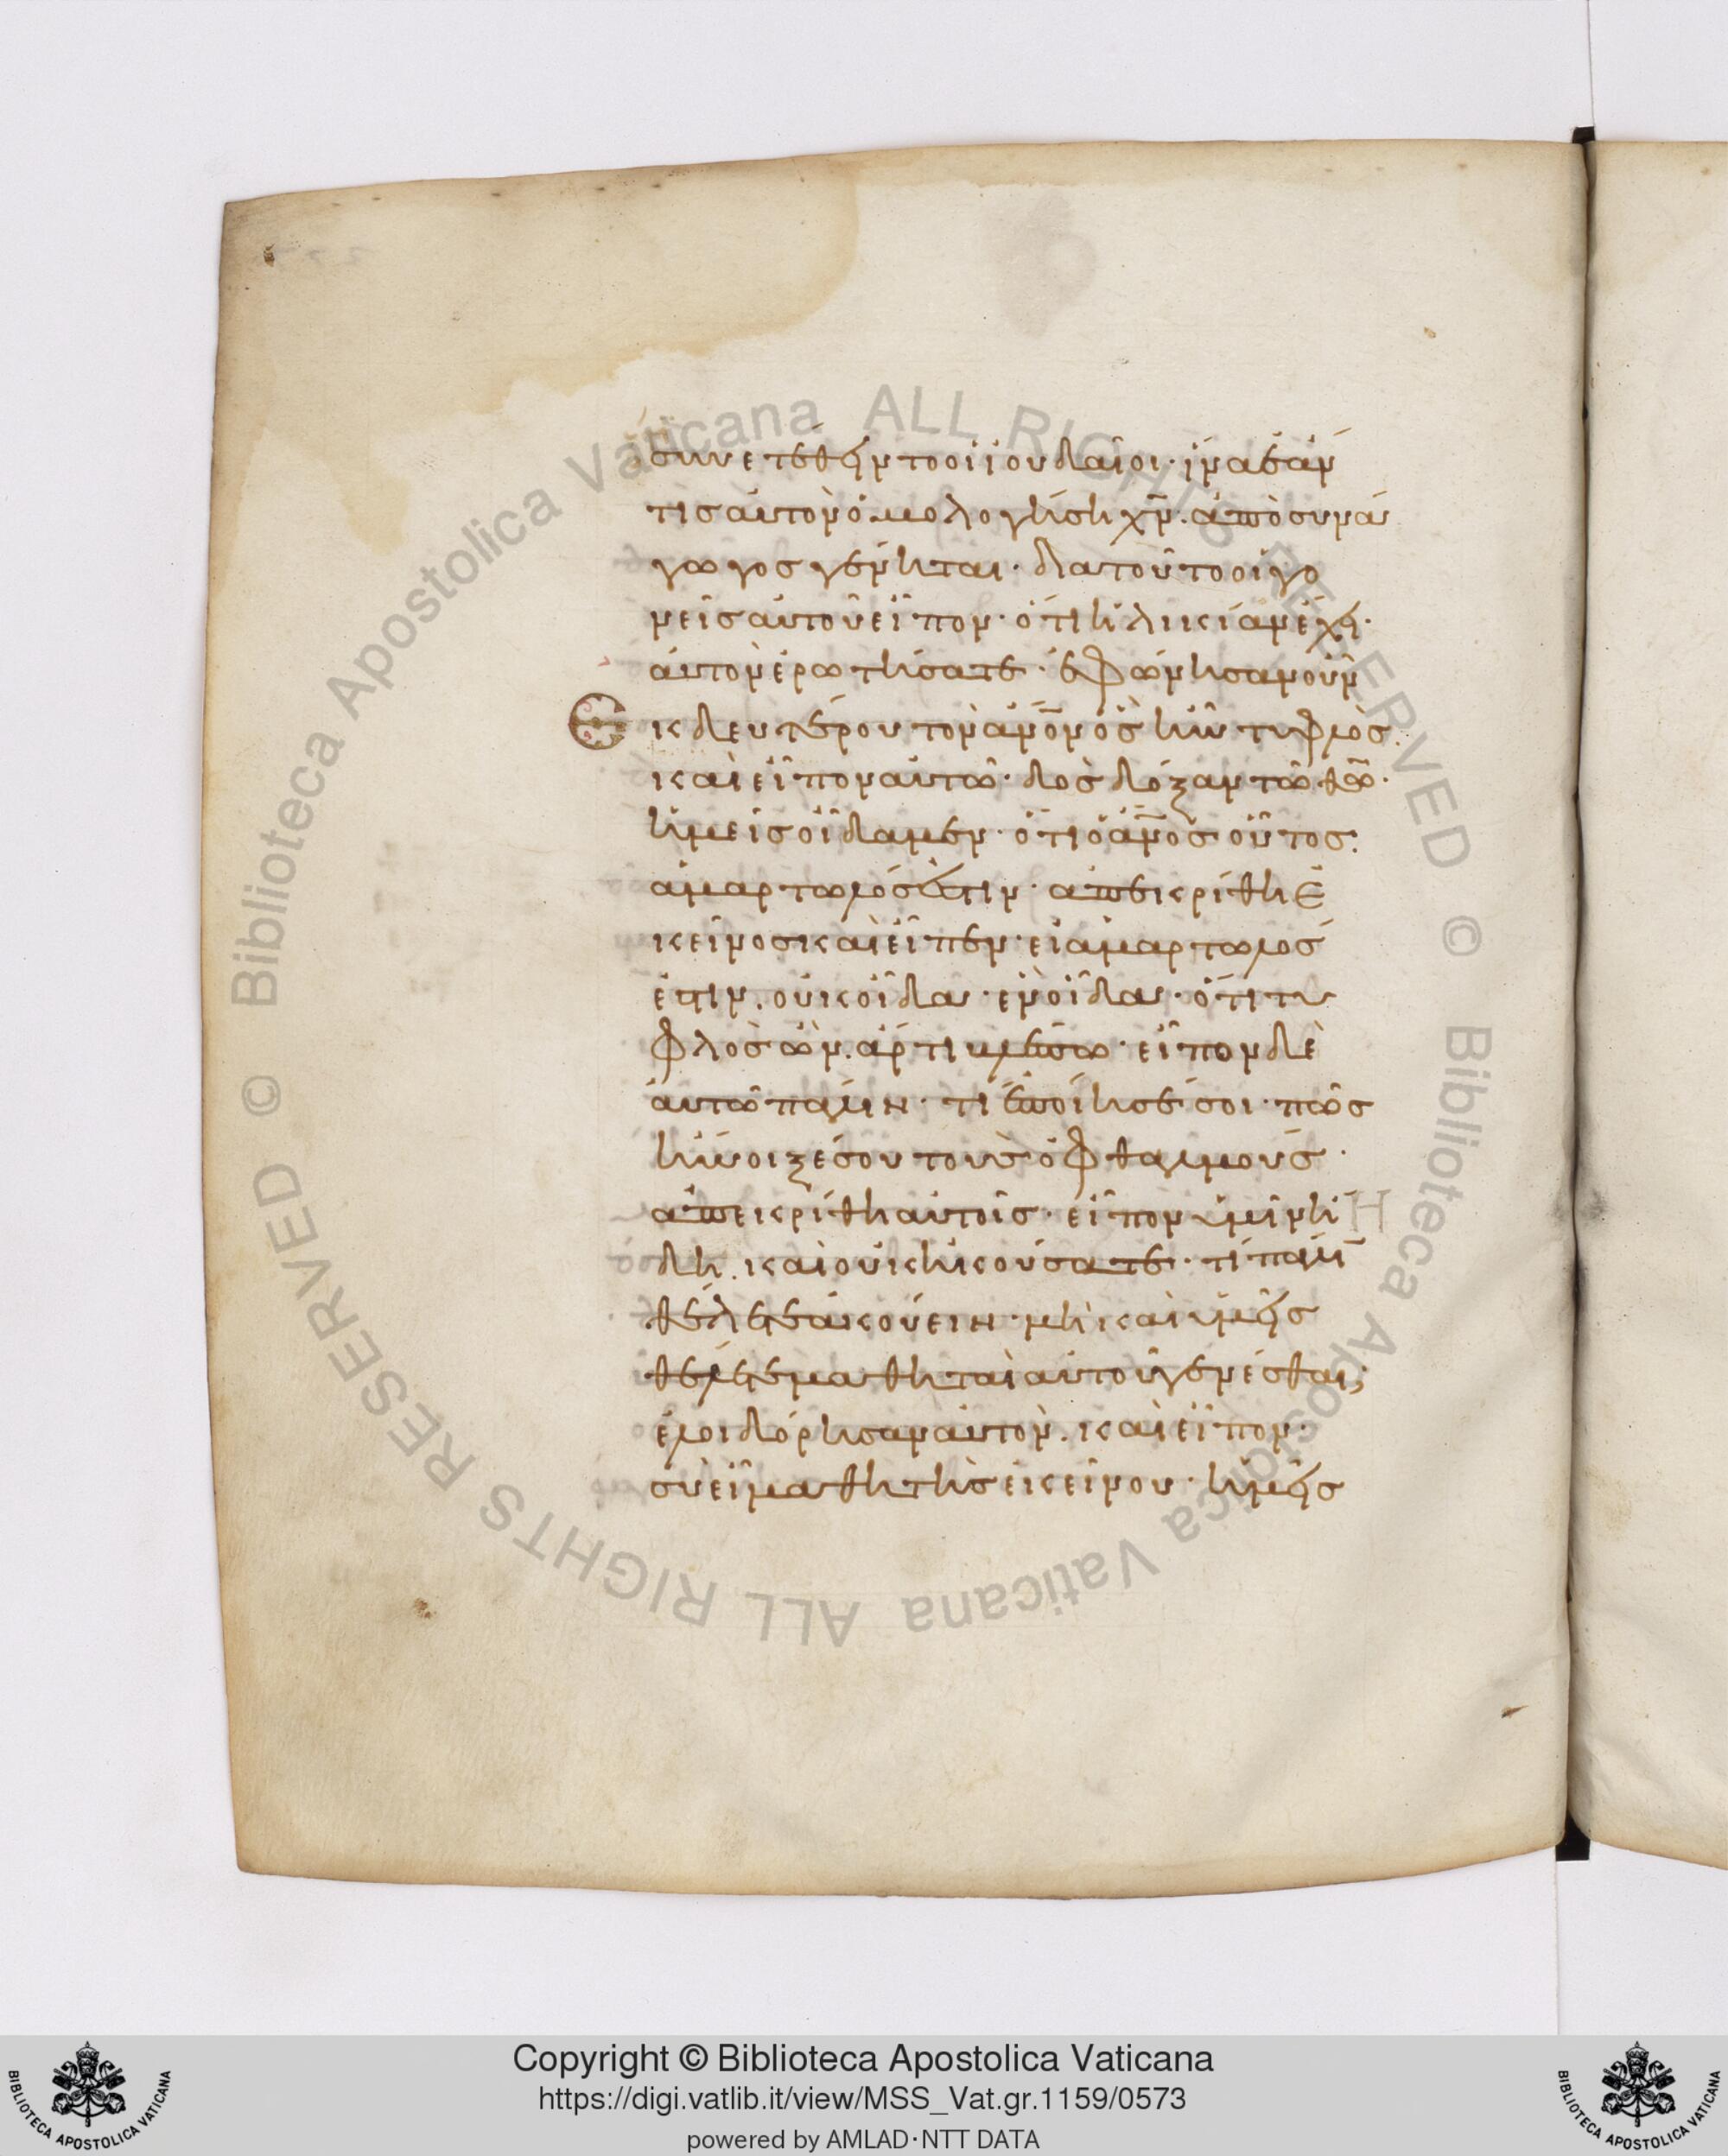 συνετέθειντο οἱ ἰουδαῖοι· ἵνα ἐάν
τις αὐτὸν ὁμολογήση χ̅ν̅. ἀποσυνά
γωγος γένηται· διατοῦτο οἱ γο
νεῖς αὐτοῦ εἶπον· ὅτι ἡλικίαν ἔχει·
αὐτὸν ἐρωτήσατε· ἐφώνησαν οὖν
ἐκ δευτέρου τὸν α̅ν̅ο̅ν̅ ὃς ἦν τυφλὸς.
καὶ εἶπον αὐτῶ· δὸς δόξαν τῶ θ̅ω̅·
ἡμεῖς οἴδαμεν· ὅτι ὁ α̅ν̅ο̅ς̅ οὗτος.
ἁμαρτωλός ἐστιν· ἀπεκρίθη ἐ
κεῖνος καὶ εἶπεν· εἰ ἁμαρτωλός
ἐστιν. οὐκ οἶδα· ἓν οἶδα· ὅτι τυ
φλὸς ὢν. ἄρτι βλέπω· εἶπον δὲ
αὐτῶ πάλιν· τί ἐποίησέ σοι· πῶς
ἤνοιξέ σου τοὺς ὀφθαλμούς·
ἀπεκρίθη αὐτοῖς· εἶπον ὑμῖν ἤ
δη. καὶ οὐκ ἠκούσατε· τί πάλιν
θέλετε ἀκούειν· μὴ καὶ ὑμεῖς
θέλετε μαθηταὶ αὐτοῦ γενέσθαι;
ἐλοιδόρησαν αὐτὸν. καὶ εἶπον·
σὺ εἶ μαθητὴς ἐκείνου· ἡμεῖς
Copyright © Biblioteca Apostolica Vaticana
https://digi.vatlib.it/view/MSS_Vat.gr.1159/0573
powered by AMLAD·NTT DATA
BIBLIOTECA APOSTOLICA VATICANA
BIBLIOTECA APOSTOLICA VATICANA
© Biblioteca Apostolica Vaticana ALL RIGHTS RESERVED
© Biblioteca Apostolica Vaticana ALL RIGHTS RESERVED